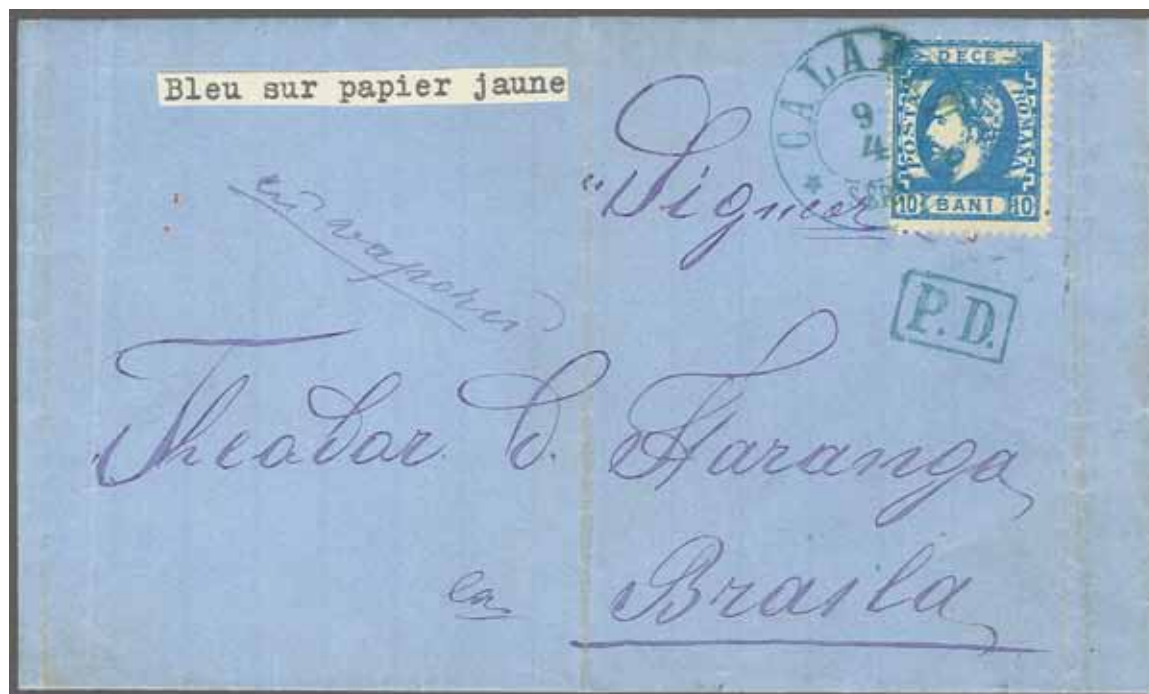 Bleu sur papier jaune
GALA
9
4
DECE
POSTA
ROMANA
10 BANI 10
Signor
P.D.
cu vaporu
Theodor. D. Haranga
la
Braila